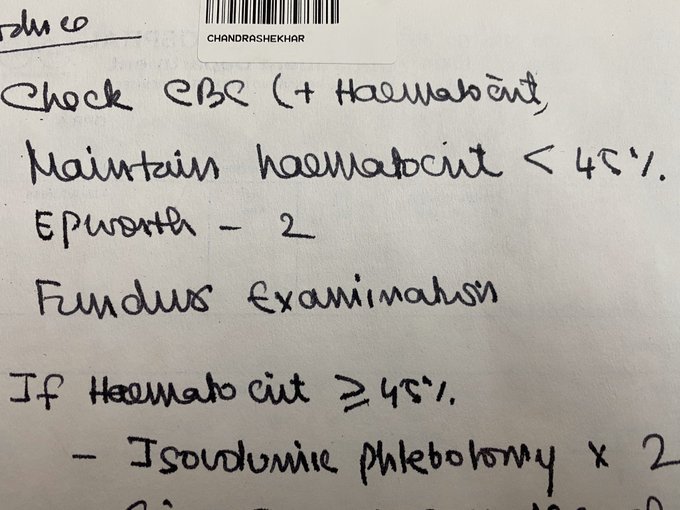 CHANDRASHEKHAR
Check CBC (+ Haematocrit,
Maintain haematocrit < 45%.
Epworth - 2
Fundus Examination
If Haematocrit ≥ 45%.
- Isovolumic phlebotomy x 2